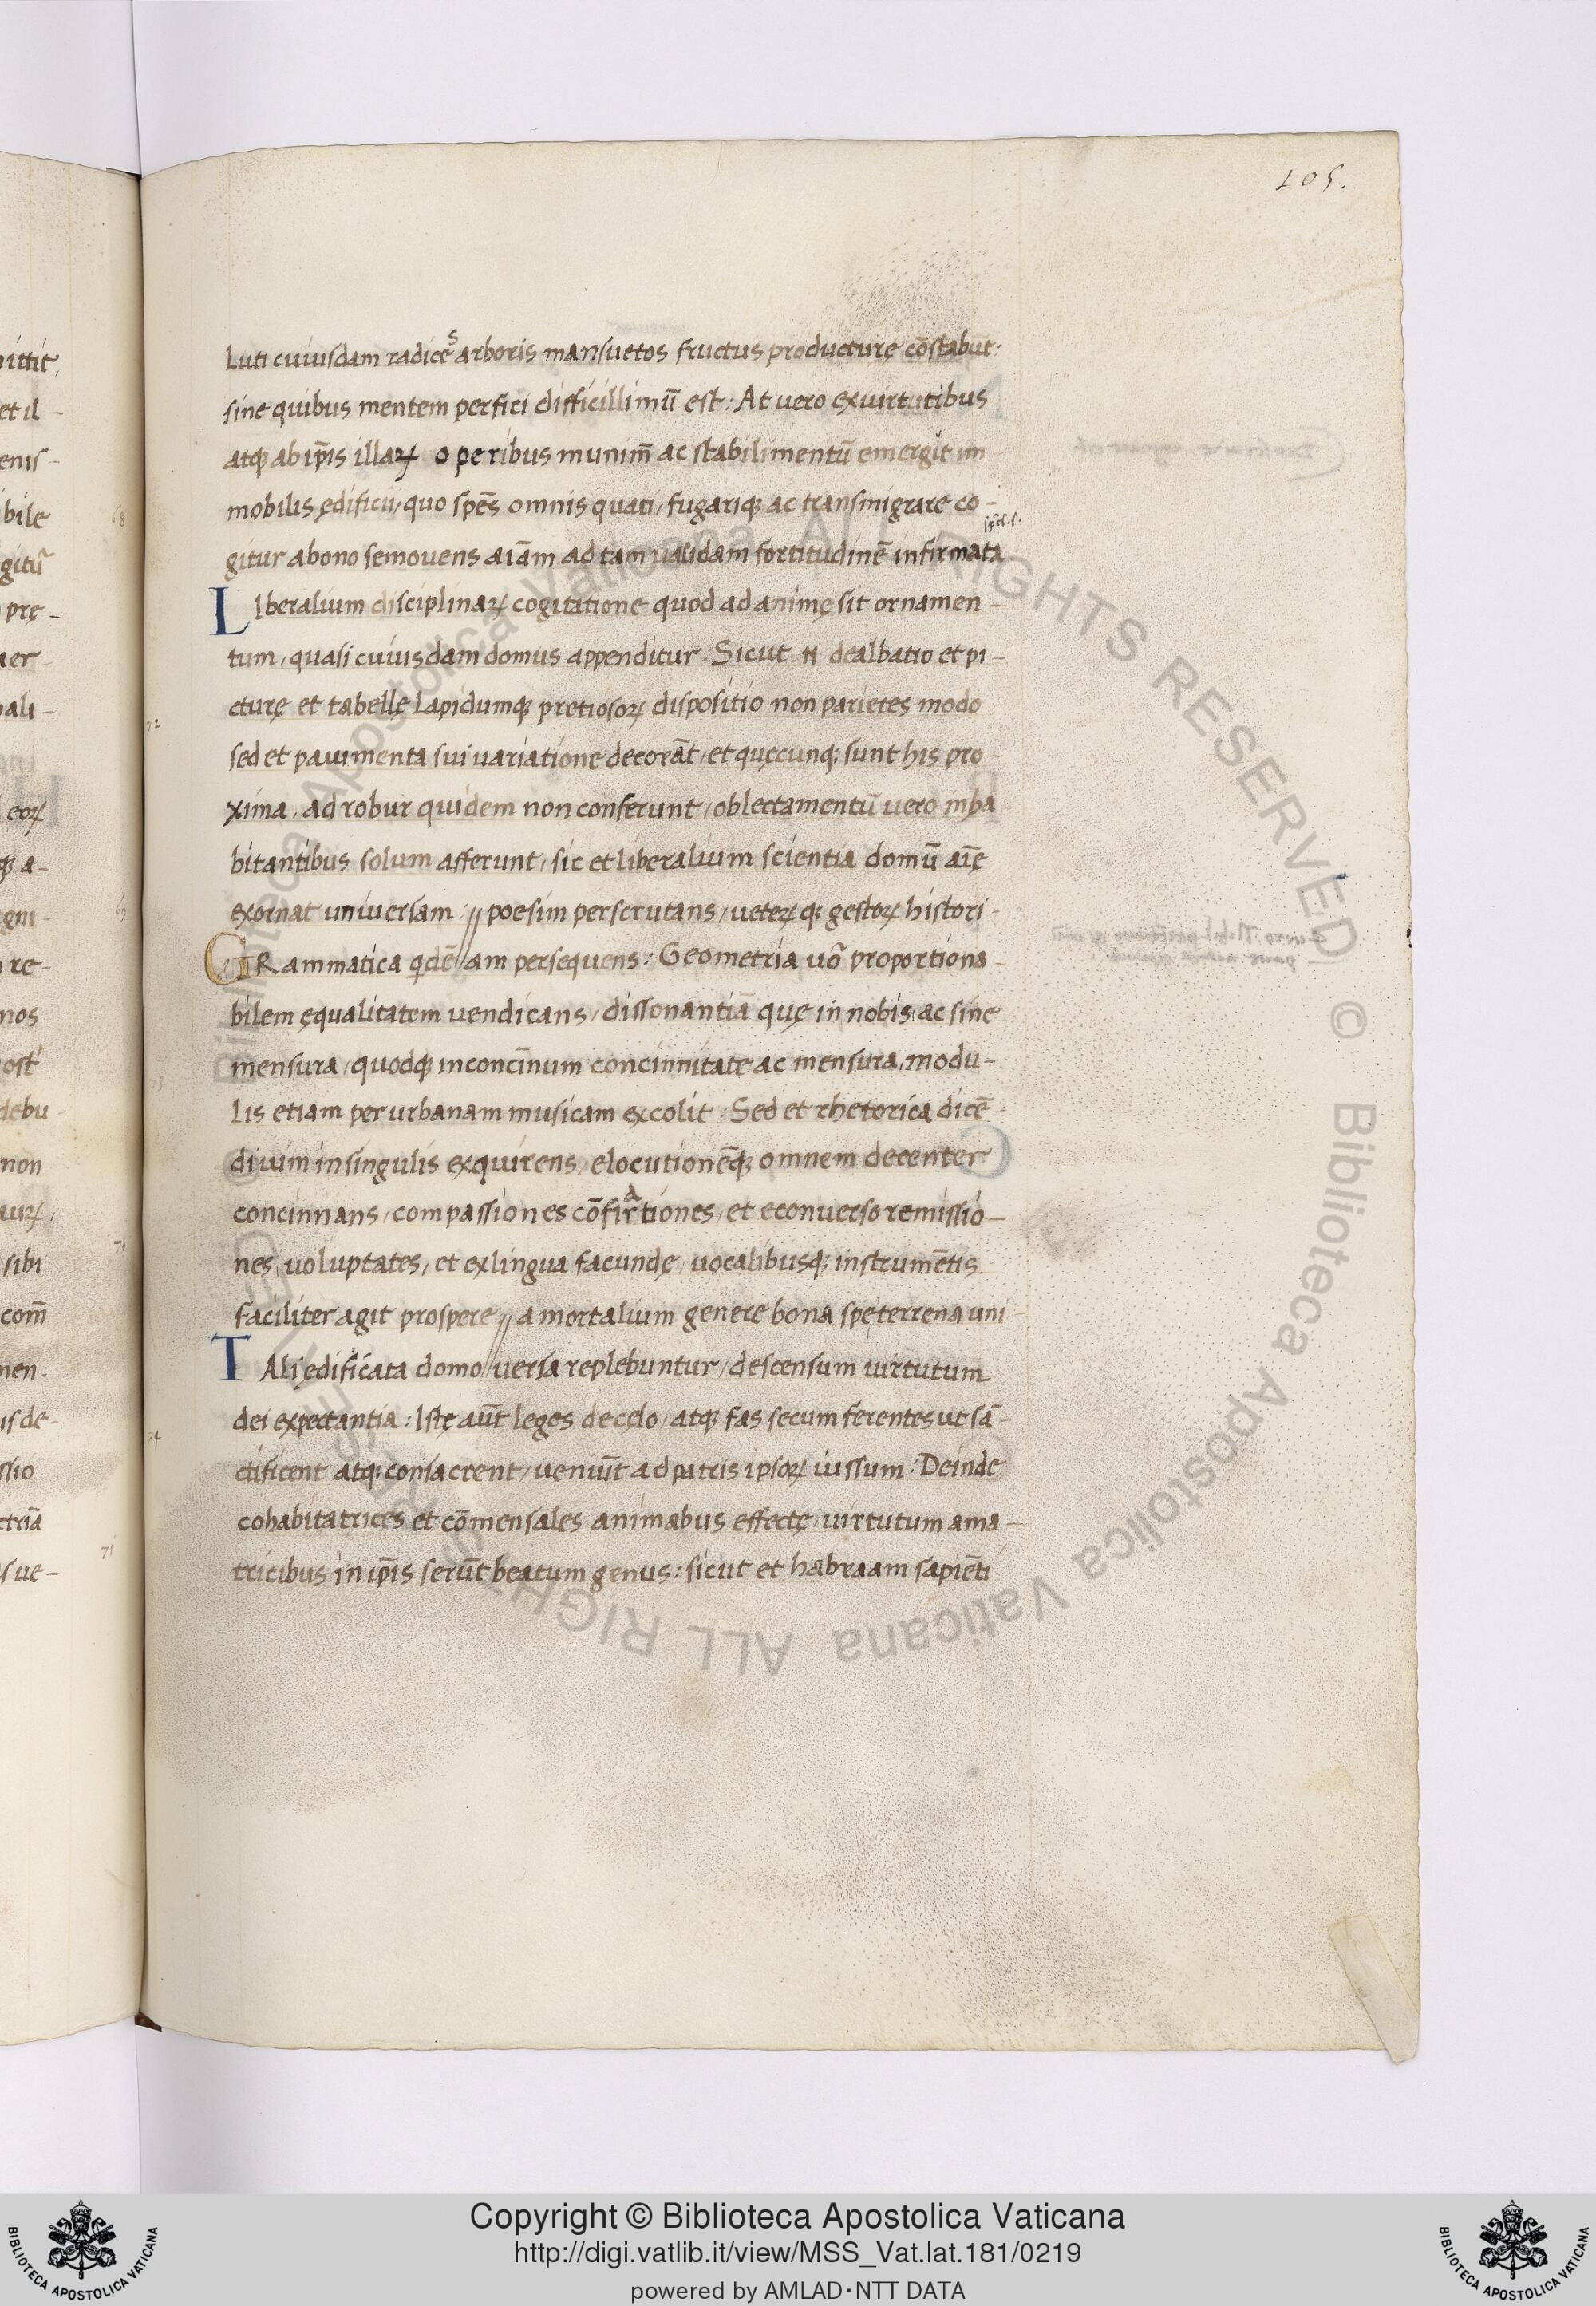 105.
luti cuiusdam radices arboris mansuetos fructus producturę cōstabūt:
sine quibus mentem perfici difficillimū est: At vero ex virtutibus
atqꝫ ab ip̄is illaꝝ operibus munim̄ ac stabilimentū emergit im-
mobilis ędificii, quo spēs omnis quati, fugariqꝫ ac transmigrare co-
spēs.s.
gitur a bono semovens aīam ad tam validam fortitudinē infirmata
Liberalium disciplinaꝝ cogitatione quod ad animę sit ornamen-
tum, quasi cuiusdam domus appenditur: Sicut n dealbatio et pi-
cturę et tabellę lapidumqꝫ pretiosoꝝ dispositio non parietes modo
sed et pavimenta sui variatione decorāt, et quęcunqꝫ sunt his pro-
xima, ad robur quidem non conferunt, oblectamentū vero inha
bitantibus solum afferunt, sic et liberalium scientia domū aīę
exornat universam: // poesim perscrutans, veteꝝ qꝫ gestoꝝ histori-
GRammatica qdē // am persequens: Geometria vō proportiona-
bilem ęqualitatem vendicans, dissonantiā quę in nobis, ac sine
mensura, quodqꝫ inconcīnum concinnitate ac mensura, modu-
lis etiam per urbanam musicam excolit: Sed et rhetorica dicē-
di vim in singulis exquirens, elocutionēqꝫ omnem decenter
concinnans, compassiones cōfirtiones, et econverso remissio-
nes, voluptates, et ex lingua facundę, vocalibusqꝫ instrumētis
faciliter agit prospere // a mortalium genere bona spe terrena uni-
TAli ędificata domo // versa replebuntur, descensum virtutum
dei expectantia: Istę aūt leges de cęlo, atqꝫ fas secum ferentes ut sā-
ctificent atqꝫ consacrent, veniūt ad patris ipsoꝝ iussum: Deinde
cohabitatrices et cōmensales animabus effectę, virtutum ama-
tricibus in ip̄is serūt beatum genus: sicut et habraam sapiēti
Copyright © Biblioteca Apostolica Vaticana
http://digi.vatlib.it/view/MSS_Vat.lat.181/0219
powered by AMLAD·NTT DATA